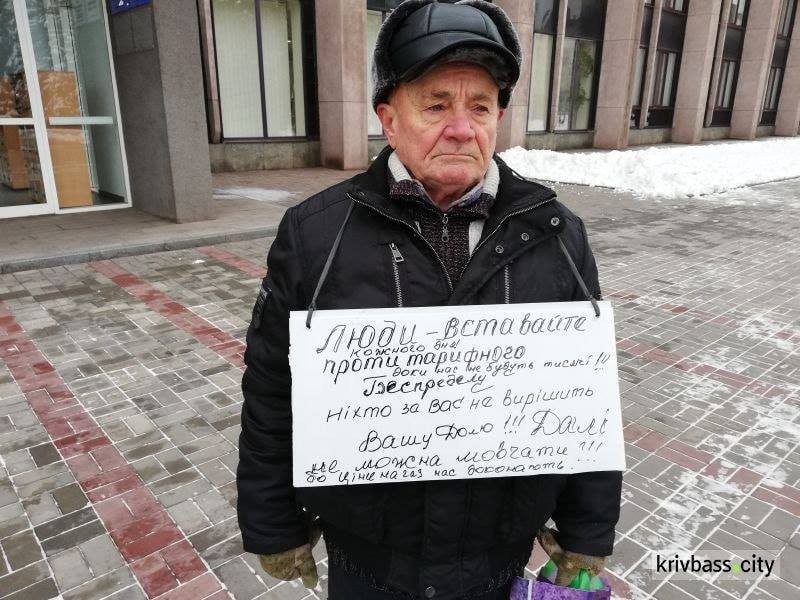 Люди - вставайте
кожного дня!
проти тарифного
доки нас не будуть тисячі!!!
Беспределу
ніхто за вас не вирішить
Вашу Долю!!! Далі
не можна мовчати!!!
бо ціни на газ нас доконають.
krivbass.city